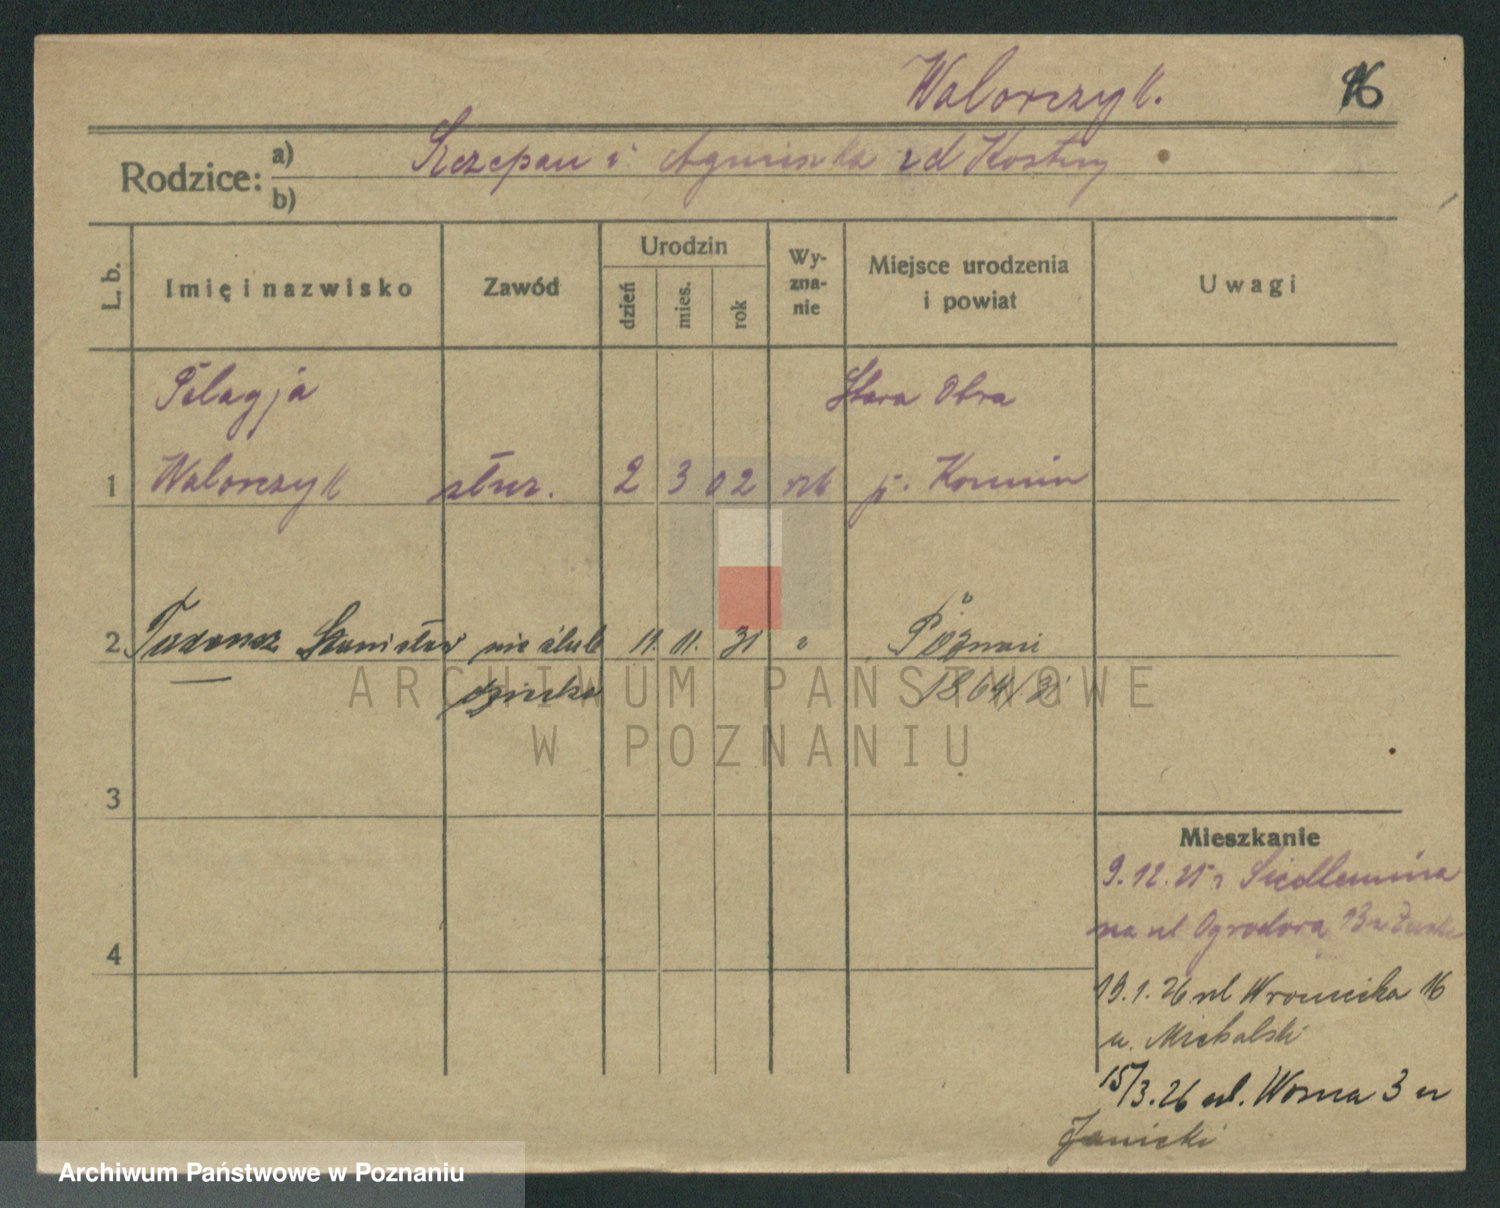 Walorczyk. 16
Rodzice: a) Szczepan i Agnieszka zd Kostuj
b)
L. b. Imię i nazwisko Zawód Urodzin dzień mies. rok Wy-zna-nie Miejsce urodzenia i powiat Uwagi
Pelagja Stara Obra
1 Walorczyk służ. 2 3 02 rzk p. Koźmin
2 Tadeusz Stanisław nieślub 11. 11. 31 " Poznań
dziecko 1864/31
3
4
Mieszkanie
9.12.25 z Siedlemina
na ul Ogrodora 13 u
19.1.26 ul Wroniecka 16
u. Michalski
15/3.26 ul. Woźna 3 u
Janicki
ARCHIWUM PAŃSTWOWE
W POZNANIU
Archiwum Państwowe w Poznaniu